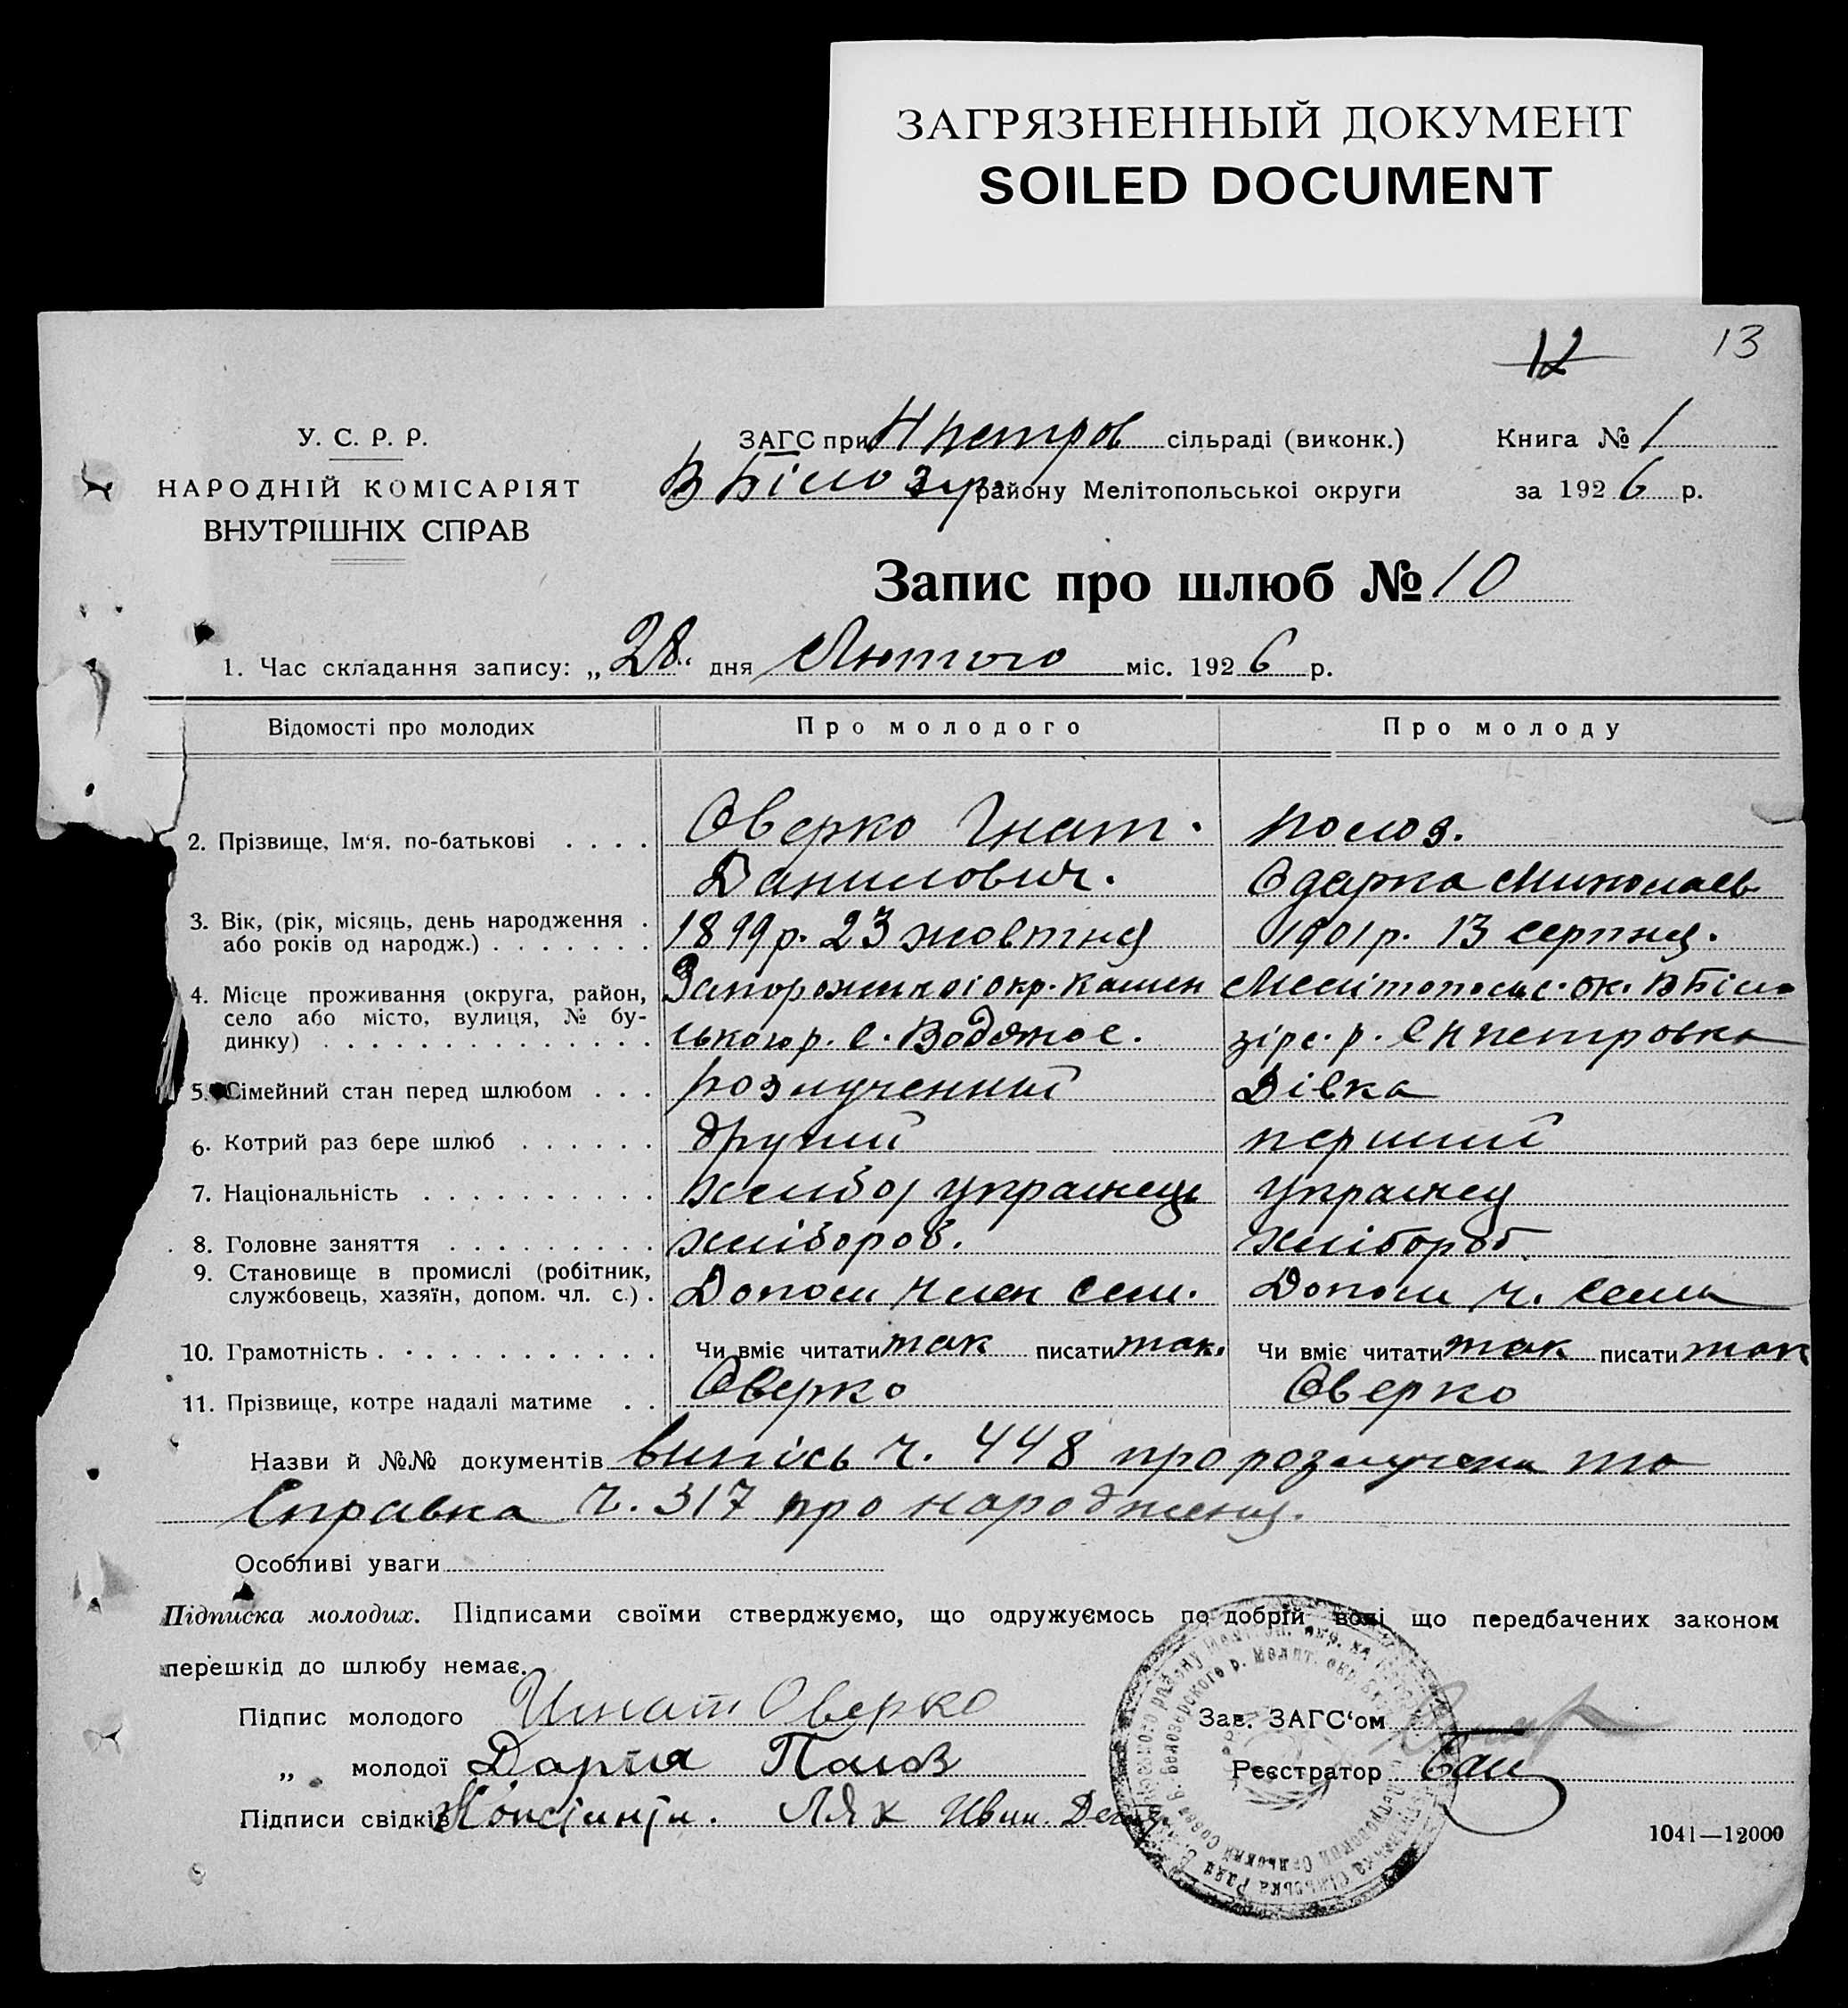 ЗАГРЯЗНЕННЫЙ ДОКУМЕНТ
SOILED DOCUMENT
12 13
У. С. Р. Р.
НАРОДНІЙ КОМІСАРІЯТ
ВНУТРІШНІХ СПРАВ
ЗАГС при Нпетров сільраді (виконк.)
В Білозір району Мелітопольської округи
Книга № 1
за 1926 р.
Запис про шлюб № 10
1. Час складання запису: „28" дня Лютого міс. 1926 р.
Відомості про молодих Про молодого Про молоду
2. Прізвище, Ім'я, по-батькові . . . . Оверко Гнат. Полоз.
Данилович. Одарка Миколаєв
3. Вік, (рік, місяць, день народження . 1899 р. 23 жовтня 1901 р. 13 серпня.
або років од народж.) . . . . . . .
4. Місце проживання (округа, район, Запорожської окр. Камен Мелітопольс. ок. В Біло
село або місто, вулиця, № бу-
динку) . . . . . . . . . . . . . . ського р. с. Водяное. зірс. р. с Нпетровка
5. Сімейний стан перед шлюбом . . . розлученний Дівка
6. Котрий раз бере шлюб . . . . . . другий перший
7. Національність . . . . . . . . . . українець українц
8. Головне заняття . . . . . . . . . хлібороб. хлібороб
9. Становище в промислі (робітник,
службовець, хазяїн, допом. чл. с.) . Допом член сем. Допом ч. семи
10. Грамотність . . . . . . . . . . . . Чи вміє читати так писати так. Чи вміє читати так писати так
11. Прізвище, котре надалі матиме . . Оверко Оверко
Назви й №№ документів випісь ч. 448 про розлучени та
Справка ч. 317 про народження.
Особливі уваги
Підписка молодих. Підписами своїми стверджуємо, що одружуємось по добрій волі що передбачених законом
перешкід до шлюбу немає.
Підпис молодого Игнат Оверко
Зав. ЗАГС'ом
„ молодої Дария Полоз
Реєстратор
Підписи свідків Лях Иван
1041—12000